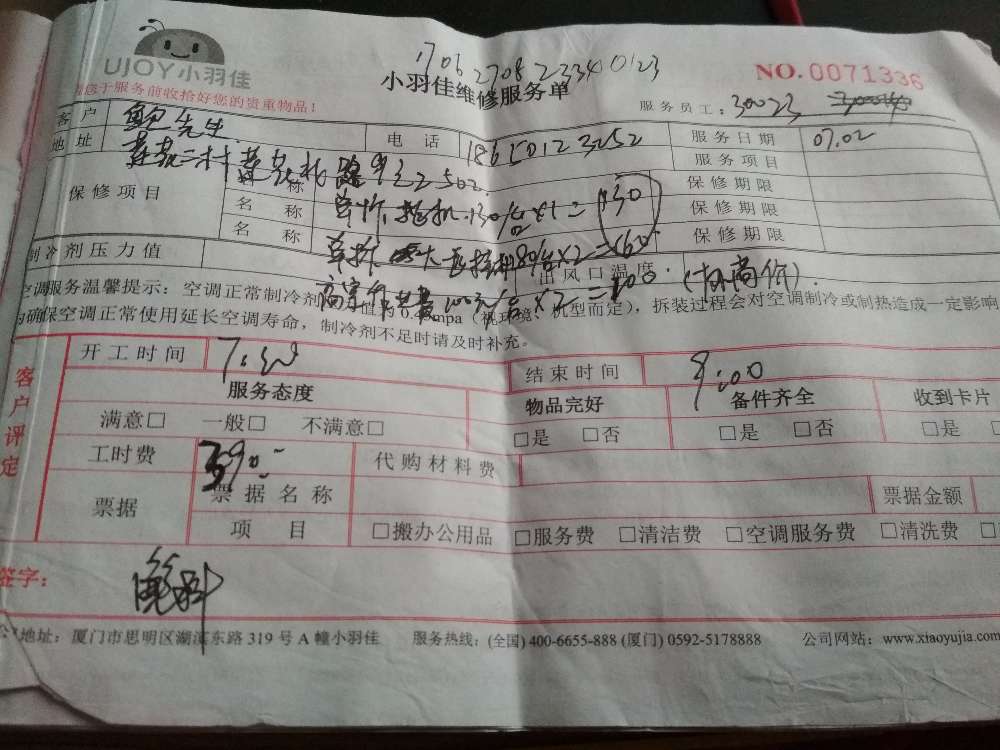 UJOY小羽佳
170627082334 0123
小羽佳维修服务单
NO.0071336
您于服务前收拾好您的贵重物品！
服务员工：30023
客户 鲍先生
电话 18650123252
服务日期 07.02
地址 莲花二村莲花北路
2502
服务项目
保修项目
名称
保修期限
名称
130/台×1=130
保修期限
名称
80/台×2=160
保修期限
制冷剂压力值
出风口温度
100元/台×2=
空调服务温馨提示：空调正常制冷剂
值为0.45mpa（视环境、机型而定），拆装过程会对空调制冷或制热造成一定影响
确保空调正常使用延长空调寿命，制冷剂不足时请及时补充。
客户评定
开工时间 7:30
结束时间 9:00
服务态度
物品完好
备件齐全
收到卡片
满意□ 一般□ 不满意□
□是 □否
□是 □否
□是
工时费 390
代购材料费
票据
票据名称
票据金额
项目
□搬办公用品 □服务费 □清洁费 □空调服务费 □清洗费
签字：
地址：厦门市思明区湖滨东路 319 号 A 幢小羽佳 服务热线：(全国) 400-6655-888 (厦门) 0592-5178888 公司网站：www.xiaoyujia.com